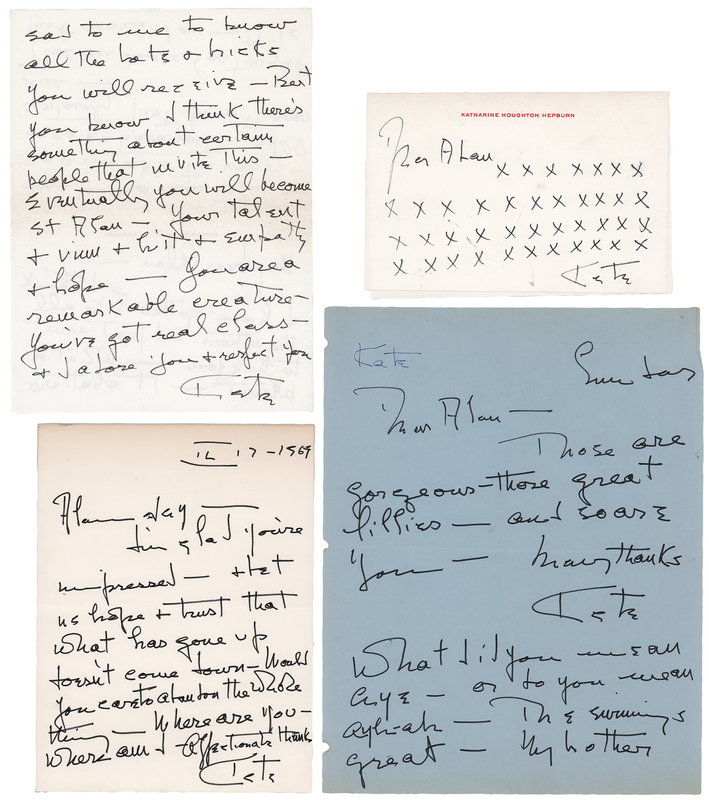 sad to me to know
all the hats & tricks
you will receive — But
you know I think there's
something about certain
people that invite this —
Eventually you will become
St Alan — Your talent
& vim & hit & Empathy
& hope — You are a
remarkable creature —
You've got real class —
& I adore you & respect you
Kate
KATHARINE HOUGHTON HEPBURN
Dear Alan
x x x x x x x
x x x x x x x x x x x
x x x x x x x x x x x
x x x x x x x x x x x
Kate
17 - 1969
Alan
I'm glad you're
impressed — & let
us hope & trust that
what has gone up
doesn't come down — Would
you care to abandon the whole
thing — Where are you —
Where am I Affectionate thanks
Kate
Kate
Sunday
Dear Alan —
Those are
gorgeous — those great
lillies — and so are
you — Many thanks
Kate
What did you mean
— or do you mean
— The swimming's
great — My brother